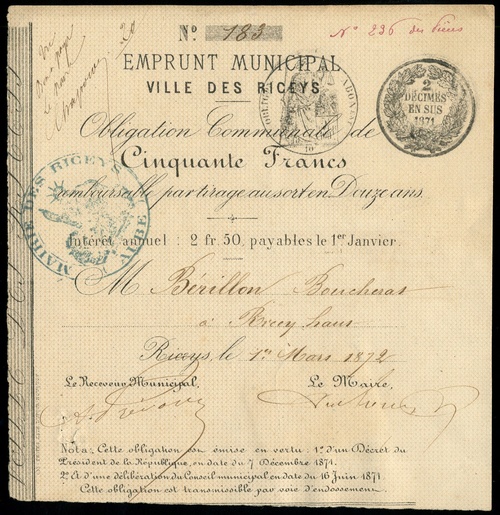 No 183
No 236 des
EMPRUNT MUNICIPAL
VILLE DES RICEYS
2
DÉCIMES
EN SUS
1871
Obligation Communale de
Cinquante Francs
remboursable par tirage au sort en Douze ans.
MAIRIE DES RICEYS
AUBE
Intérêt annuel : 2 fr. 50, payables le 1er Janvier.
M Bérillon Boucherat
à Ricey haut
Riceys, le 1er Mars 1872
Le Receveur Municipal,
Le Maire,
Nota: Cette obligation est émise en vertu: 1o d'un Décret du
Président de la République, en date du 7 Décembre 1871.
2o Et d'une délibération du Conseil municipal en date du 16 Juin 1871.
Cette obligation est transmissible par voie d'endossement.